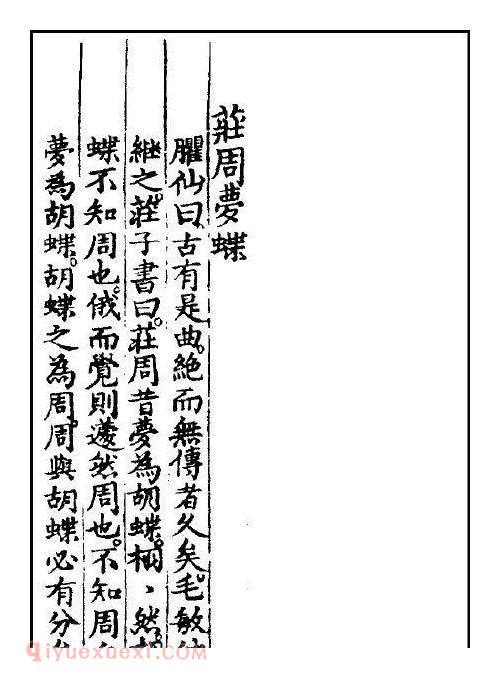 莊周夢蝶
臞仙曰古有是曲。絕而無傳者久矣。毛敏
継之。莊子書曰。莊周昔夢為胡蝶。栩〻然
蝶不知周也。俄而覺則蘧然周也。不知周
夢為胡蝶。胡蝶之為周。周與胡蝶必有分
qiyuexuexi.COM